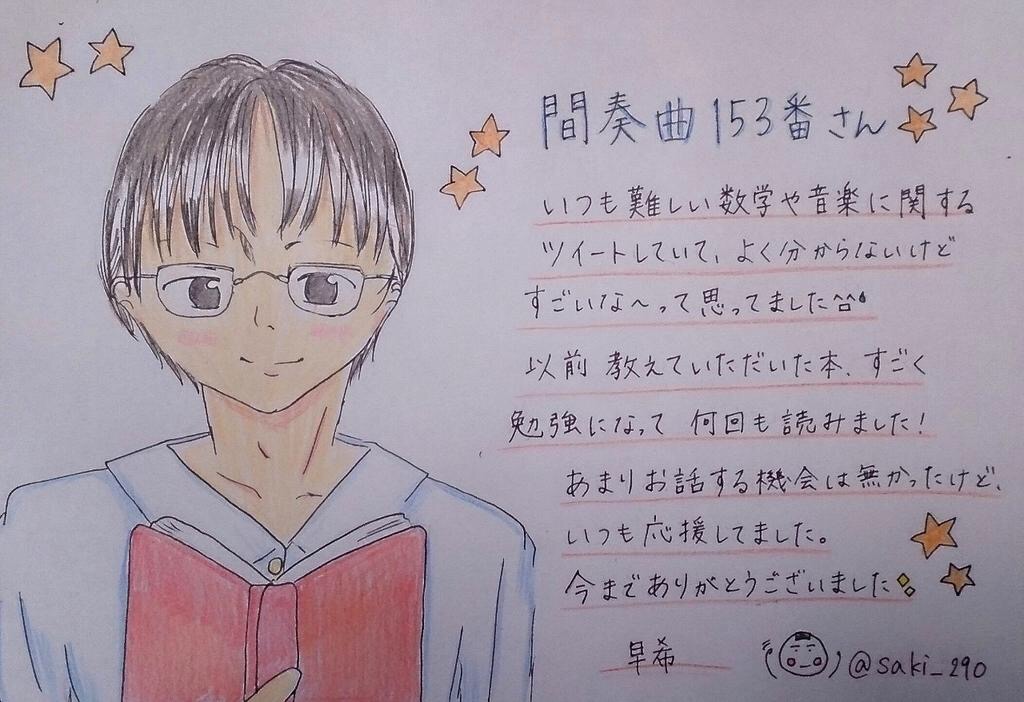 間奏曲153番さん
いつも難しい数学や音楽に関する
ツイートしていて、よく分からないけど
すごいな〜って思ってました^^
以前教えていただいた本、すごく
勉強になって 何回も読みました!
あまりお話する機会は無かったけど、
いつも応援してました。
今までありがとうございました
早希
@saki_290